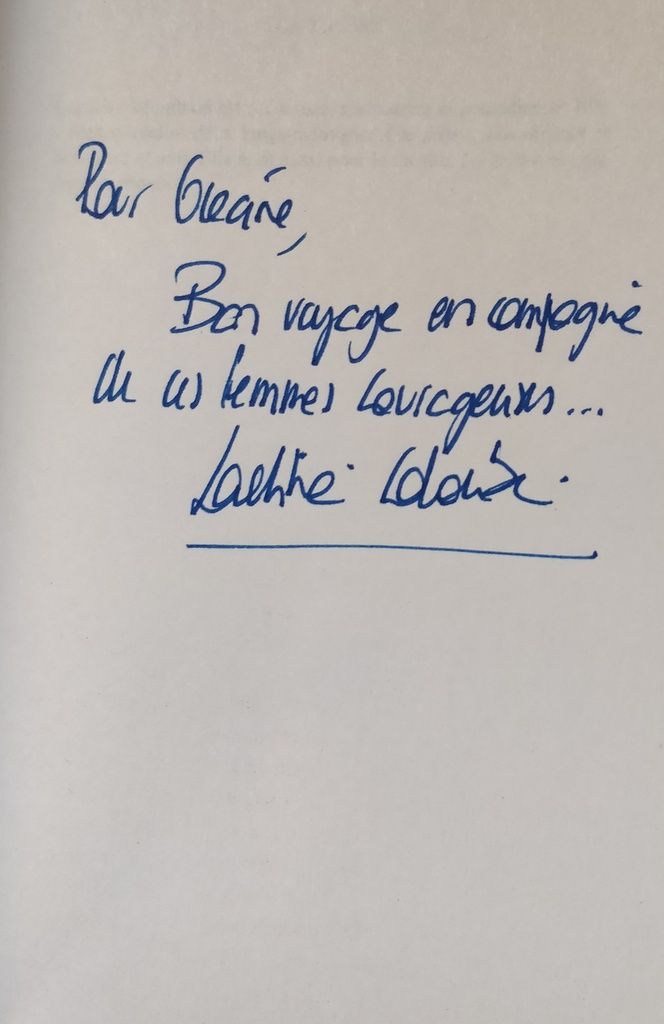 Pour Océane,
Bon voyage en compagnie
de ces femmes courageuses...
Laetitia Colombani.